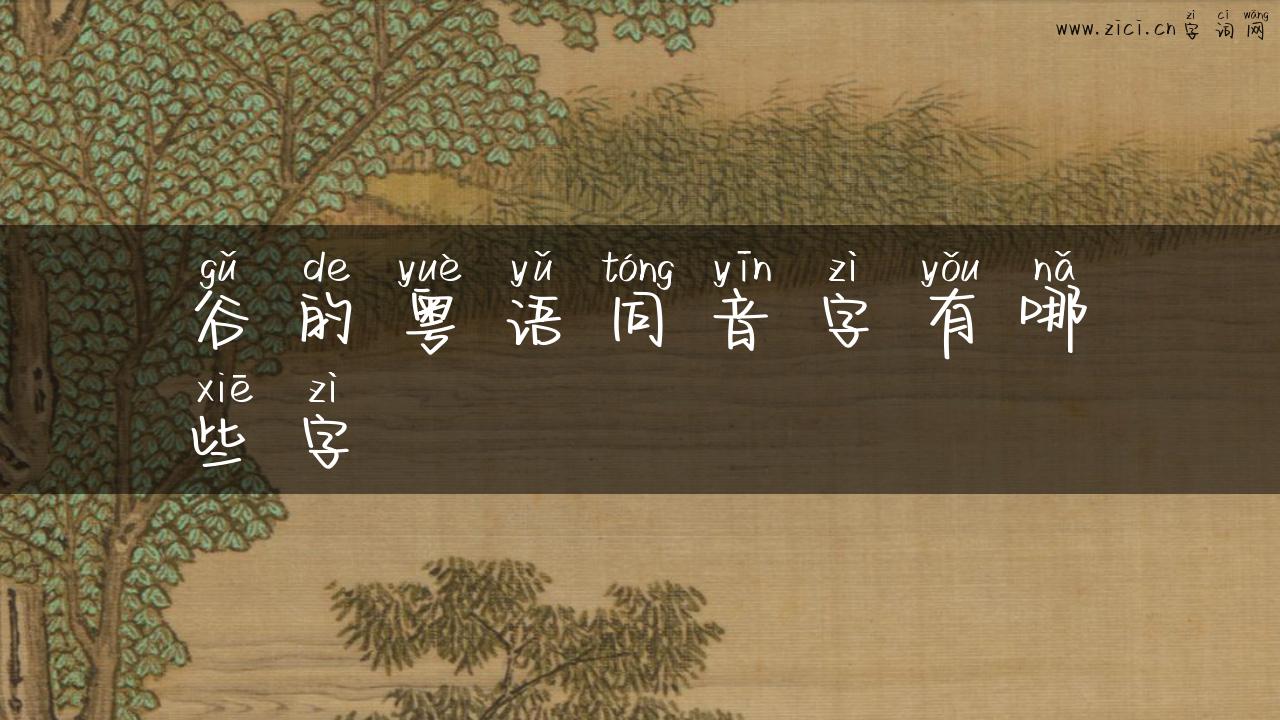 zì cí wǎng
www.zici.cn字词网
gǔ de yuè yǔ tóng yīn zì yǒu nǎ
谷的粤语同音字有哪
xiē zì
些字